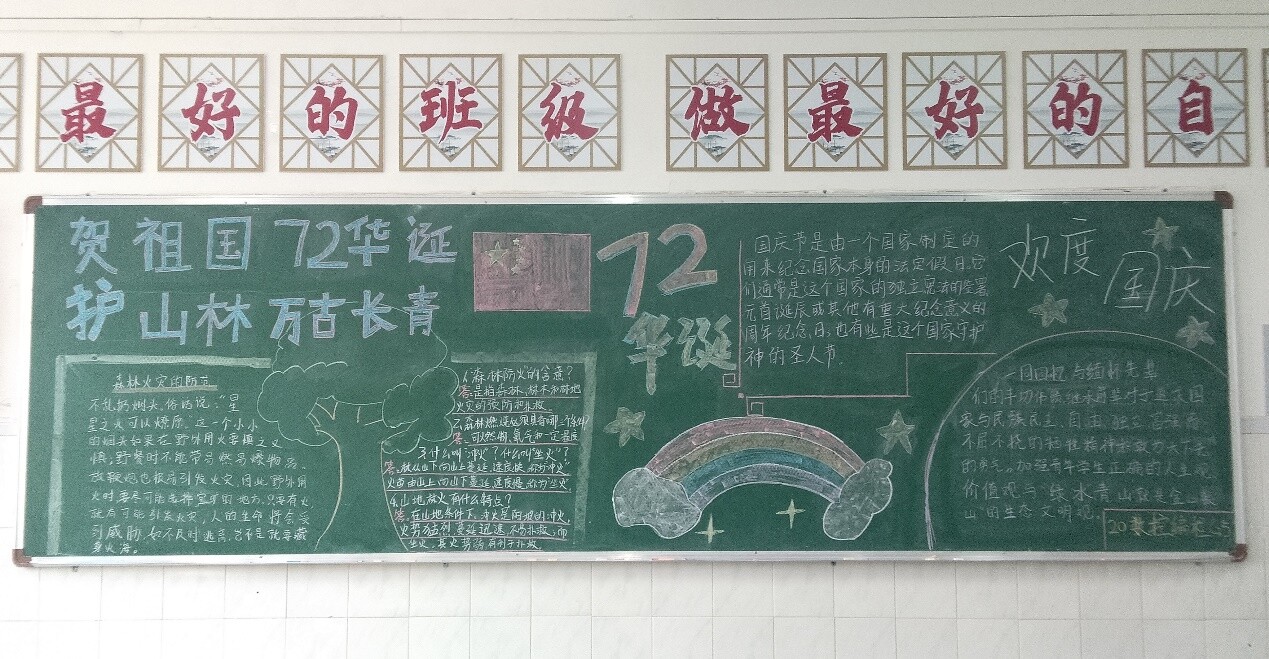 最好的班级 做最好的自
贺祖国72华诞
护山林万古长青
森林火灾的防范
不乱扔烟头。俗话说:“星
星之火可以燎原。这一个小小
的烟头如果在野外用火要慎之又
慎,野餐时不能带易燃易爆物品。
放鞭炮也极易引发火灾,因此野外用
火时要尽可能选择空旷的地方,只要有火
就有可能引发火灾,人的生命将会受
到威胁,如不及时逃
身火海。
1、“森林防火”的含意?
答:是指森林、林木和林地
火灾的预防和扑救。
2、森林燃烧必须具备哪三个条件?
答:可燃物、氧气和一定温度
3、什么叫“冲火”?什么叫“坐火”?
答:林火由下向山上蔓延,速度快,称为“冲火”
火由山上向山下蔓延,速度慢,称为“坐火”。
4、山地林火有什么特点?
答:在山地条件下,冲火是向坡的冲火,
火势猛烈,蔓延迅速,不易扑救;而
坐火,其火势弱,有利于扑救。
72
华诞
国庆节是由一个国家制定的
用来纪念国家本身的法定假日。它
们通常是这个国家的独立、宪法的签署、
元首诞辰或其他有重大纪念意义的
周年纪念日;也有些是这个国家守护
神的圣人节。
欢度
国庆
一同回忆与缅怀先辈
们的丰功伟绩,继承
家与民族民主、自由、独立
不屈不挠的牺牲精神
的勇气。加强青年学生正确的人生观
价值观与“绿水青山就是金山银
山”的生态文明观。